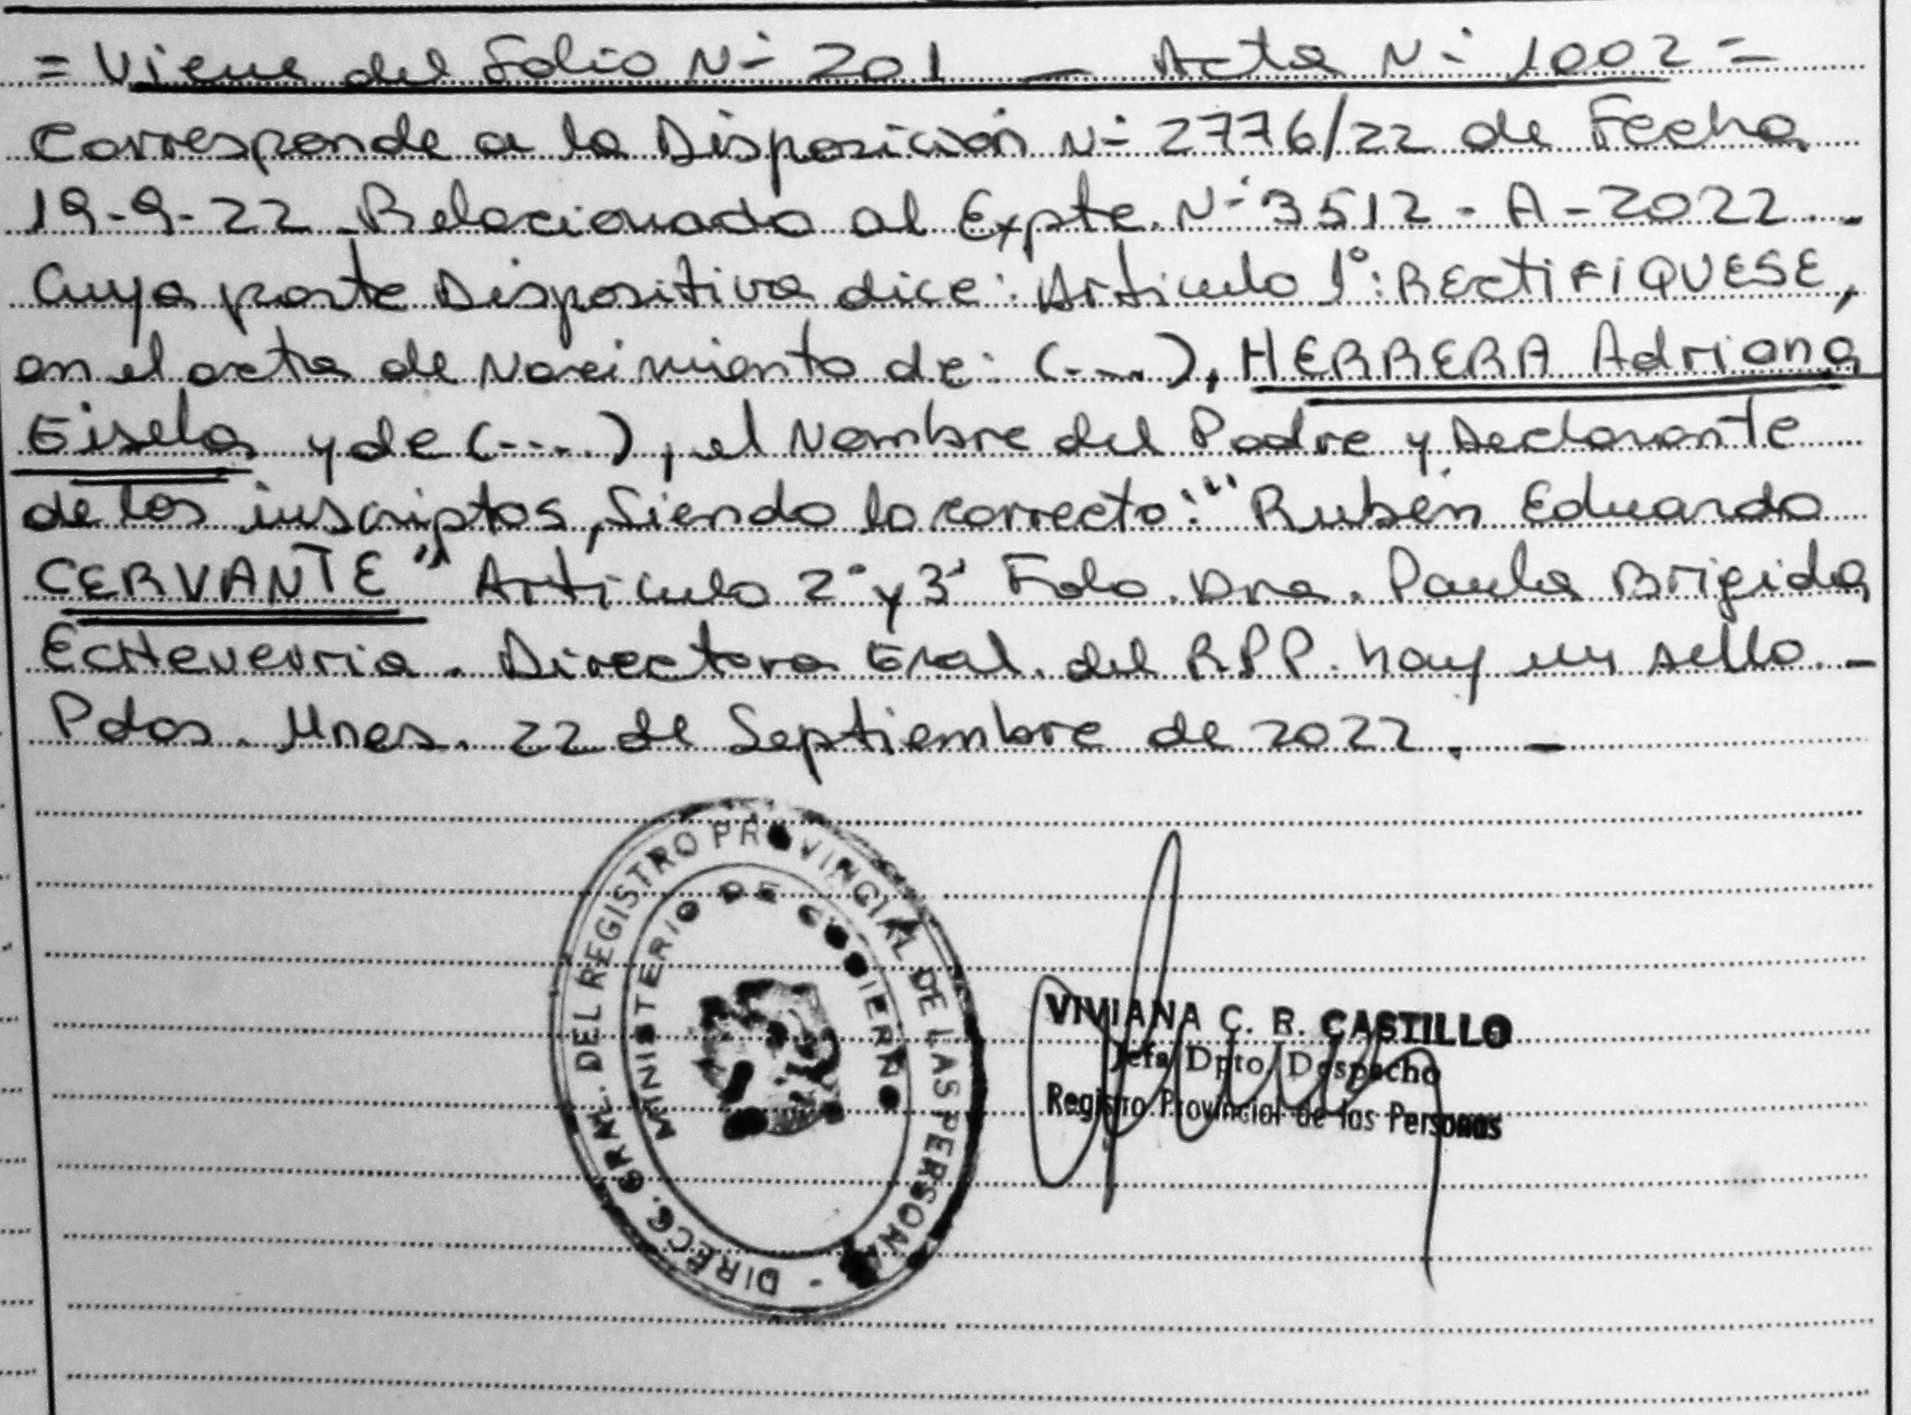 = Viene del Folio N- 201 — Acta N- 1002 =
Corresponde a la Disposición N- 2776/22 de Fecha
19-9-22 - Relacionado al Expte. N- 3512 - A - 2022. -
Cuya parte Dispositiva dice: Artículo 1°: RECTIFIQUESE,
en el acta de Nacimiento de: (...), HERRERA Adriana
Gisela y de (....), el Nombre del Padre y Declarante
de los inscriptos, Siendo lo correcto: "Rubén Eduardo
CERVANTE" Artículo 2° y 3° Fdo. Dra. Paula Brigida
Echeverria. Directora Gral. del RPP. hay un sello. -
Pdas. Mnes. 22 de Septiembre de 2022. -
DIRECC. GRAL. DEL REGISTRO PROVINCIAL DE LAS PERSONAS -
MINISTERIO DE GOBIERNO
VIVIANA C. R. CASTILLO
Jefa Dpto Despacho
Registro Provincial de las Personas